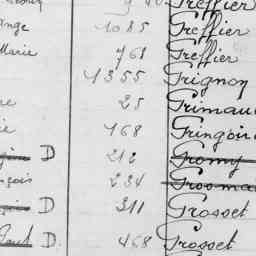 Treffier
ange 1085 Treffier
Marie 768 Treffier
1355 Trignon
re 25 Trimau
ie 168 Tringoi
D 212 Tromy
çois 234 Trooma
D 311 Trosset
Paul D. 468 Trosset